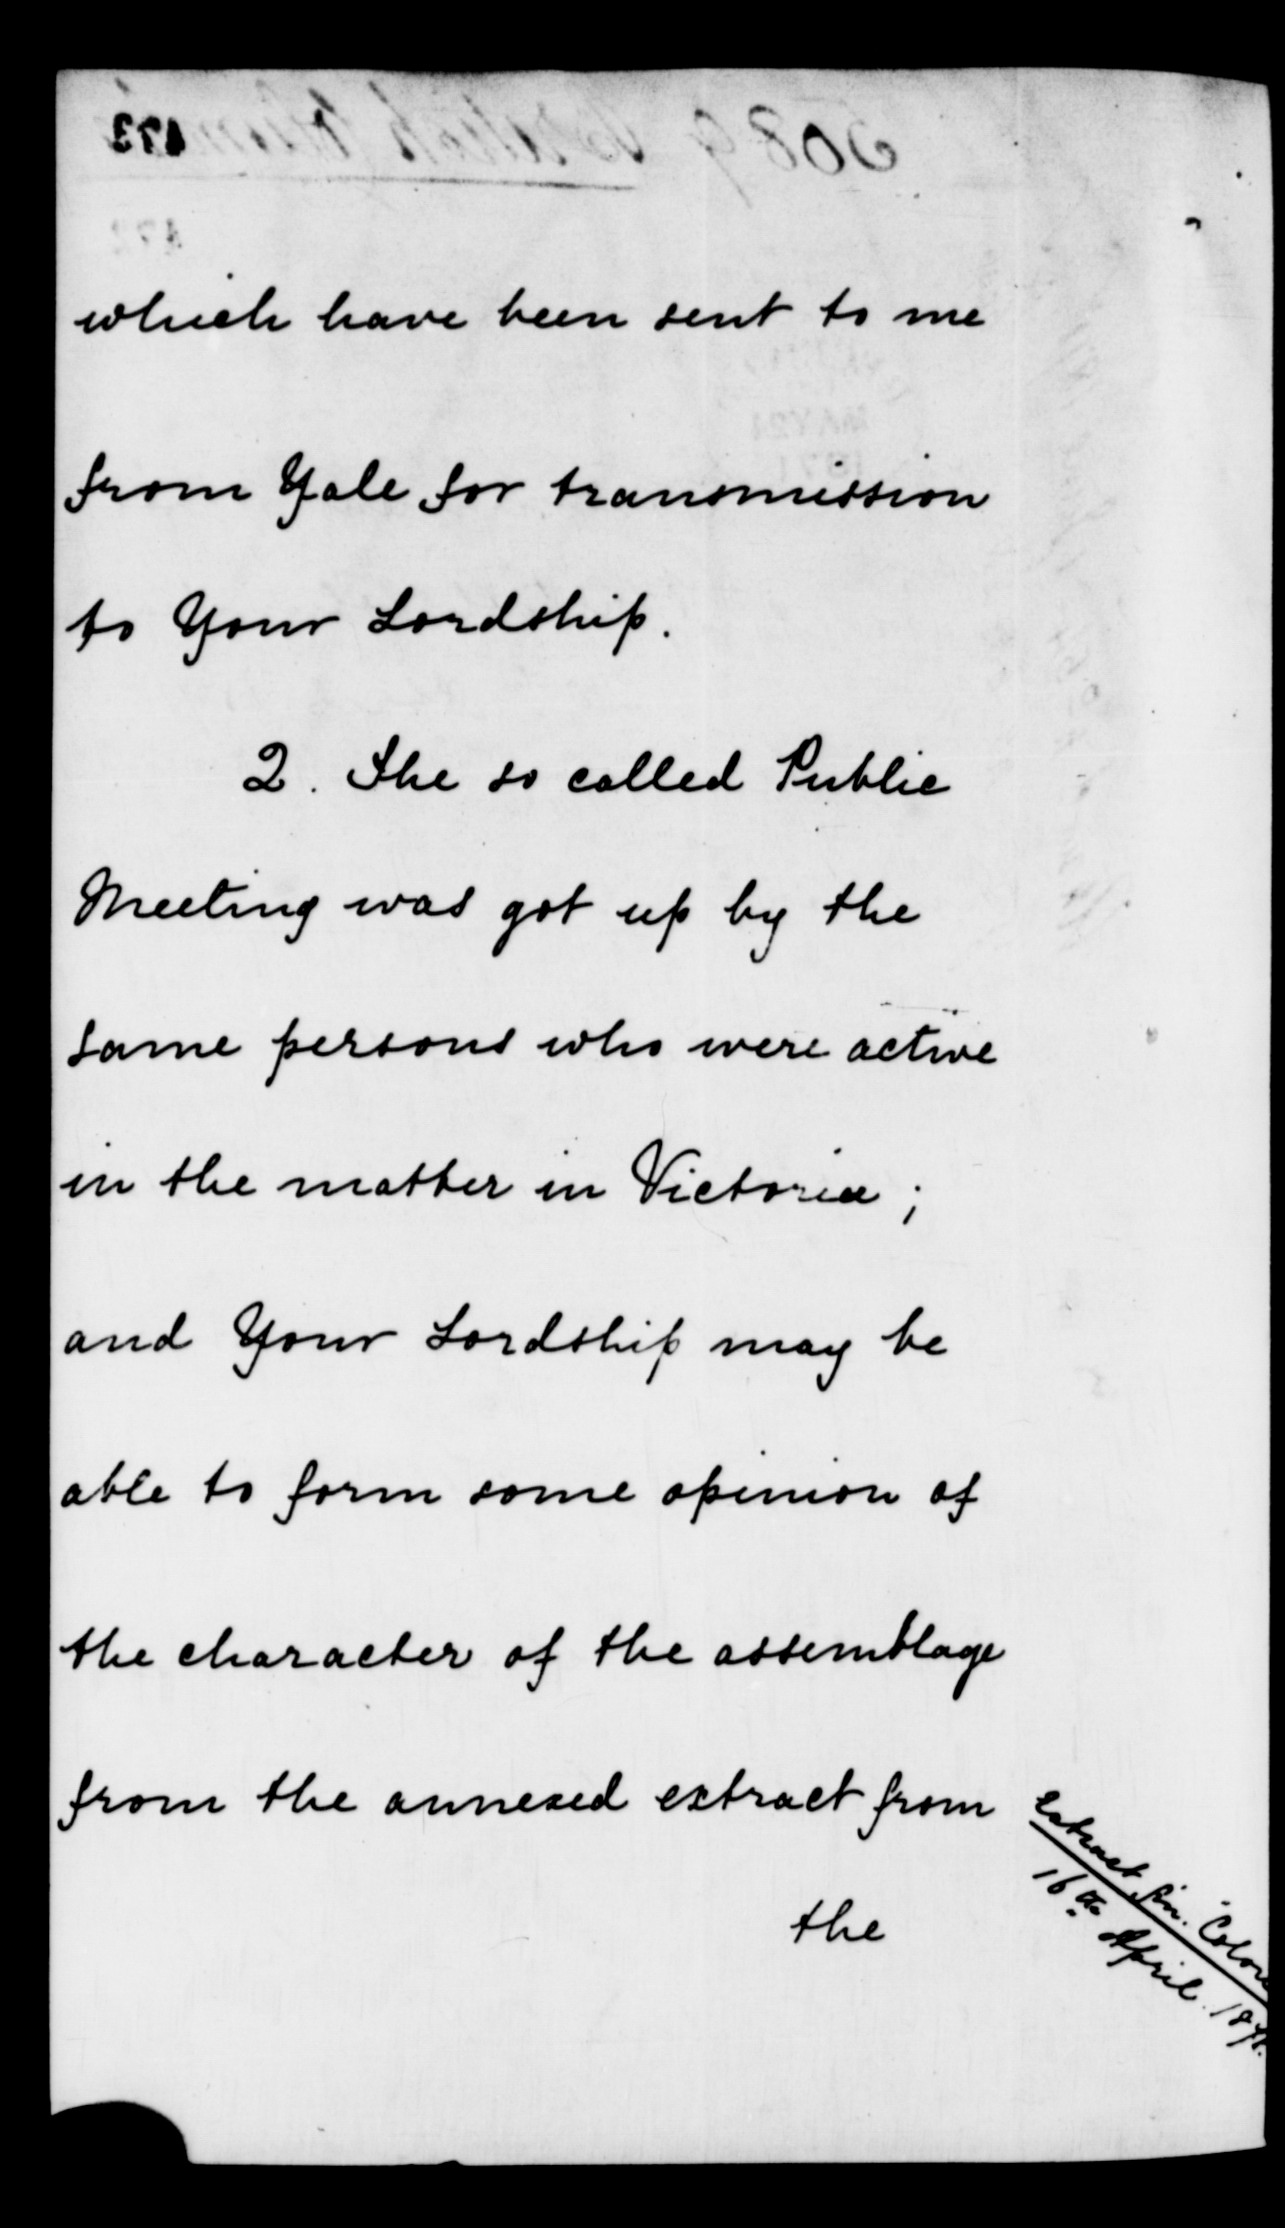 which have been sent to me
from Yale for transmission
to Your Lordship.
2. The so called Public
Meeting was got up by the
same persons who were active
in the matter in Victoria;
and Your Lordship may be
able to form some opinion of
the character of the assemblage
from the annexed extract from
the
Extract fm. "Colon
16th April. 1871.